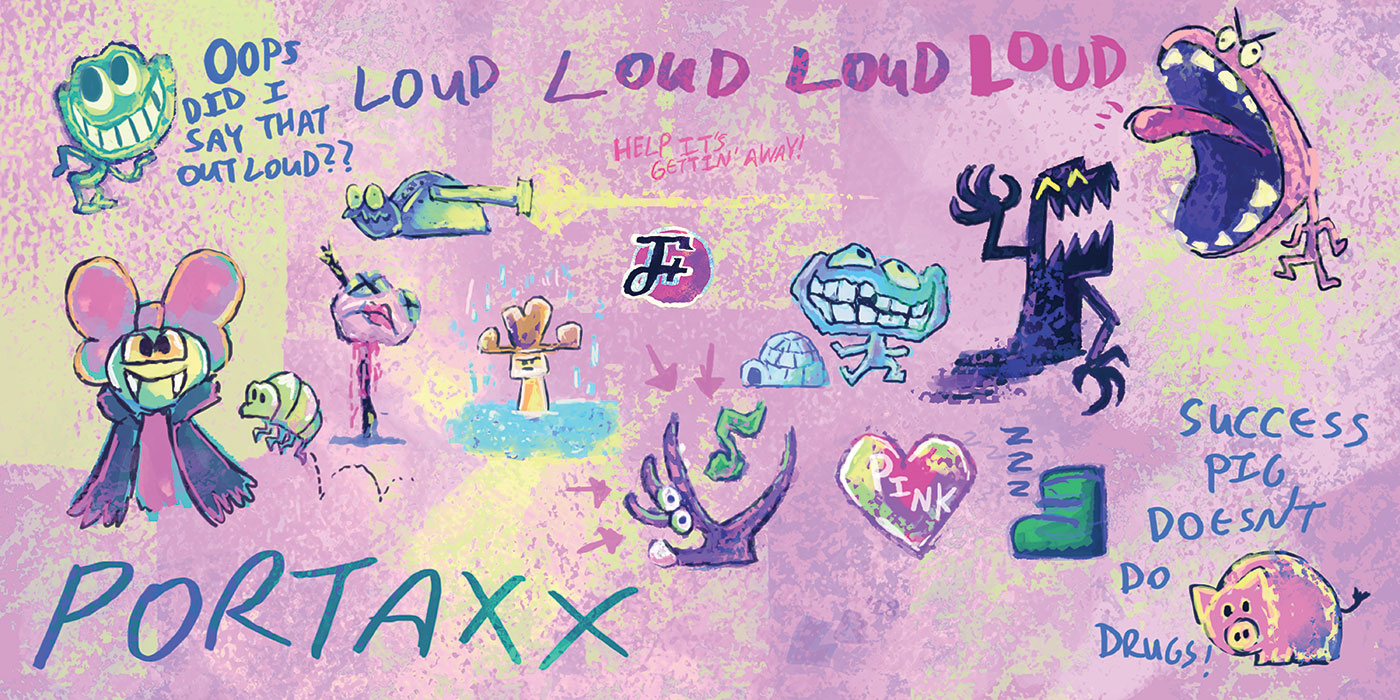 OOPS
DID I
SAY THAT
OUT LOUD??
LOUD LOUD LOUD LOUD
HELP IT'S
GETTIN' AWAY!
PINK
Z
Z
Z
Z
SUCCESS
PIG
DOESN'T
DO
DRUGS!
PORTAXX